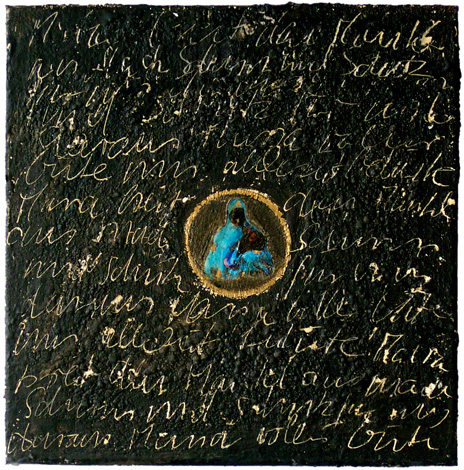 Maria breit den Mantel
aus Mach Schirm und Schutz
für uns
daraus Maria voller
Güte uns allezeit behüte
Maria breit den Mantel
aus mach Schirm
und Schirm für uns
daraus Maria voller Güte
uns allezeit behüte Maria
breit den Mantel aus mach
Schirm und Schirm für uns
daraus Maria voller Güte